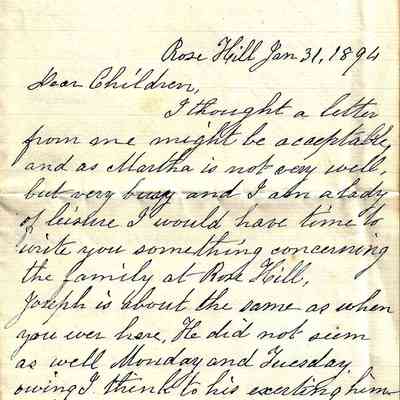 Rose Hill Jan 31, 1894
Dear Children,
I thought a letter
from me might be acceptable,
and as Martha is not very well,
but very busy and I am a lady
of leisure I would have time to
write you something concerning
the family at Rose Hill,
Joseph is about the same as when
you wer here, He did not seem
as well Monday and Tuesday
owing I think to his exerting him-